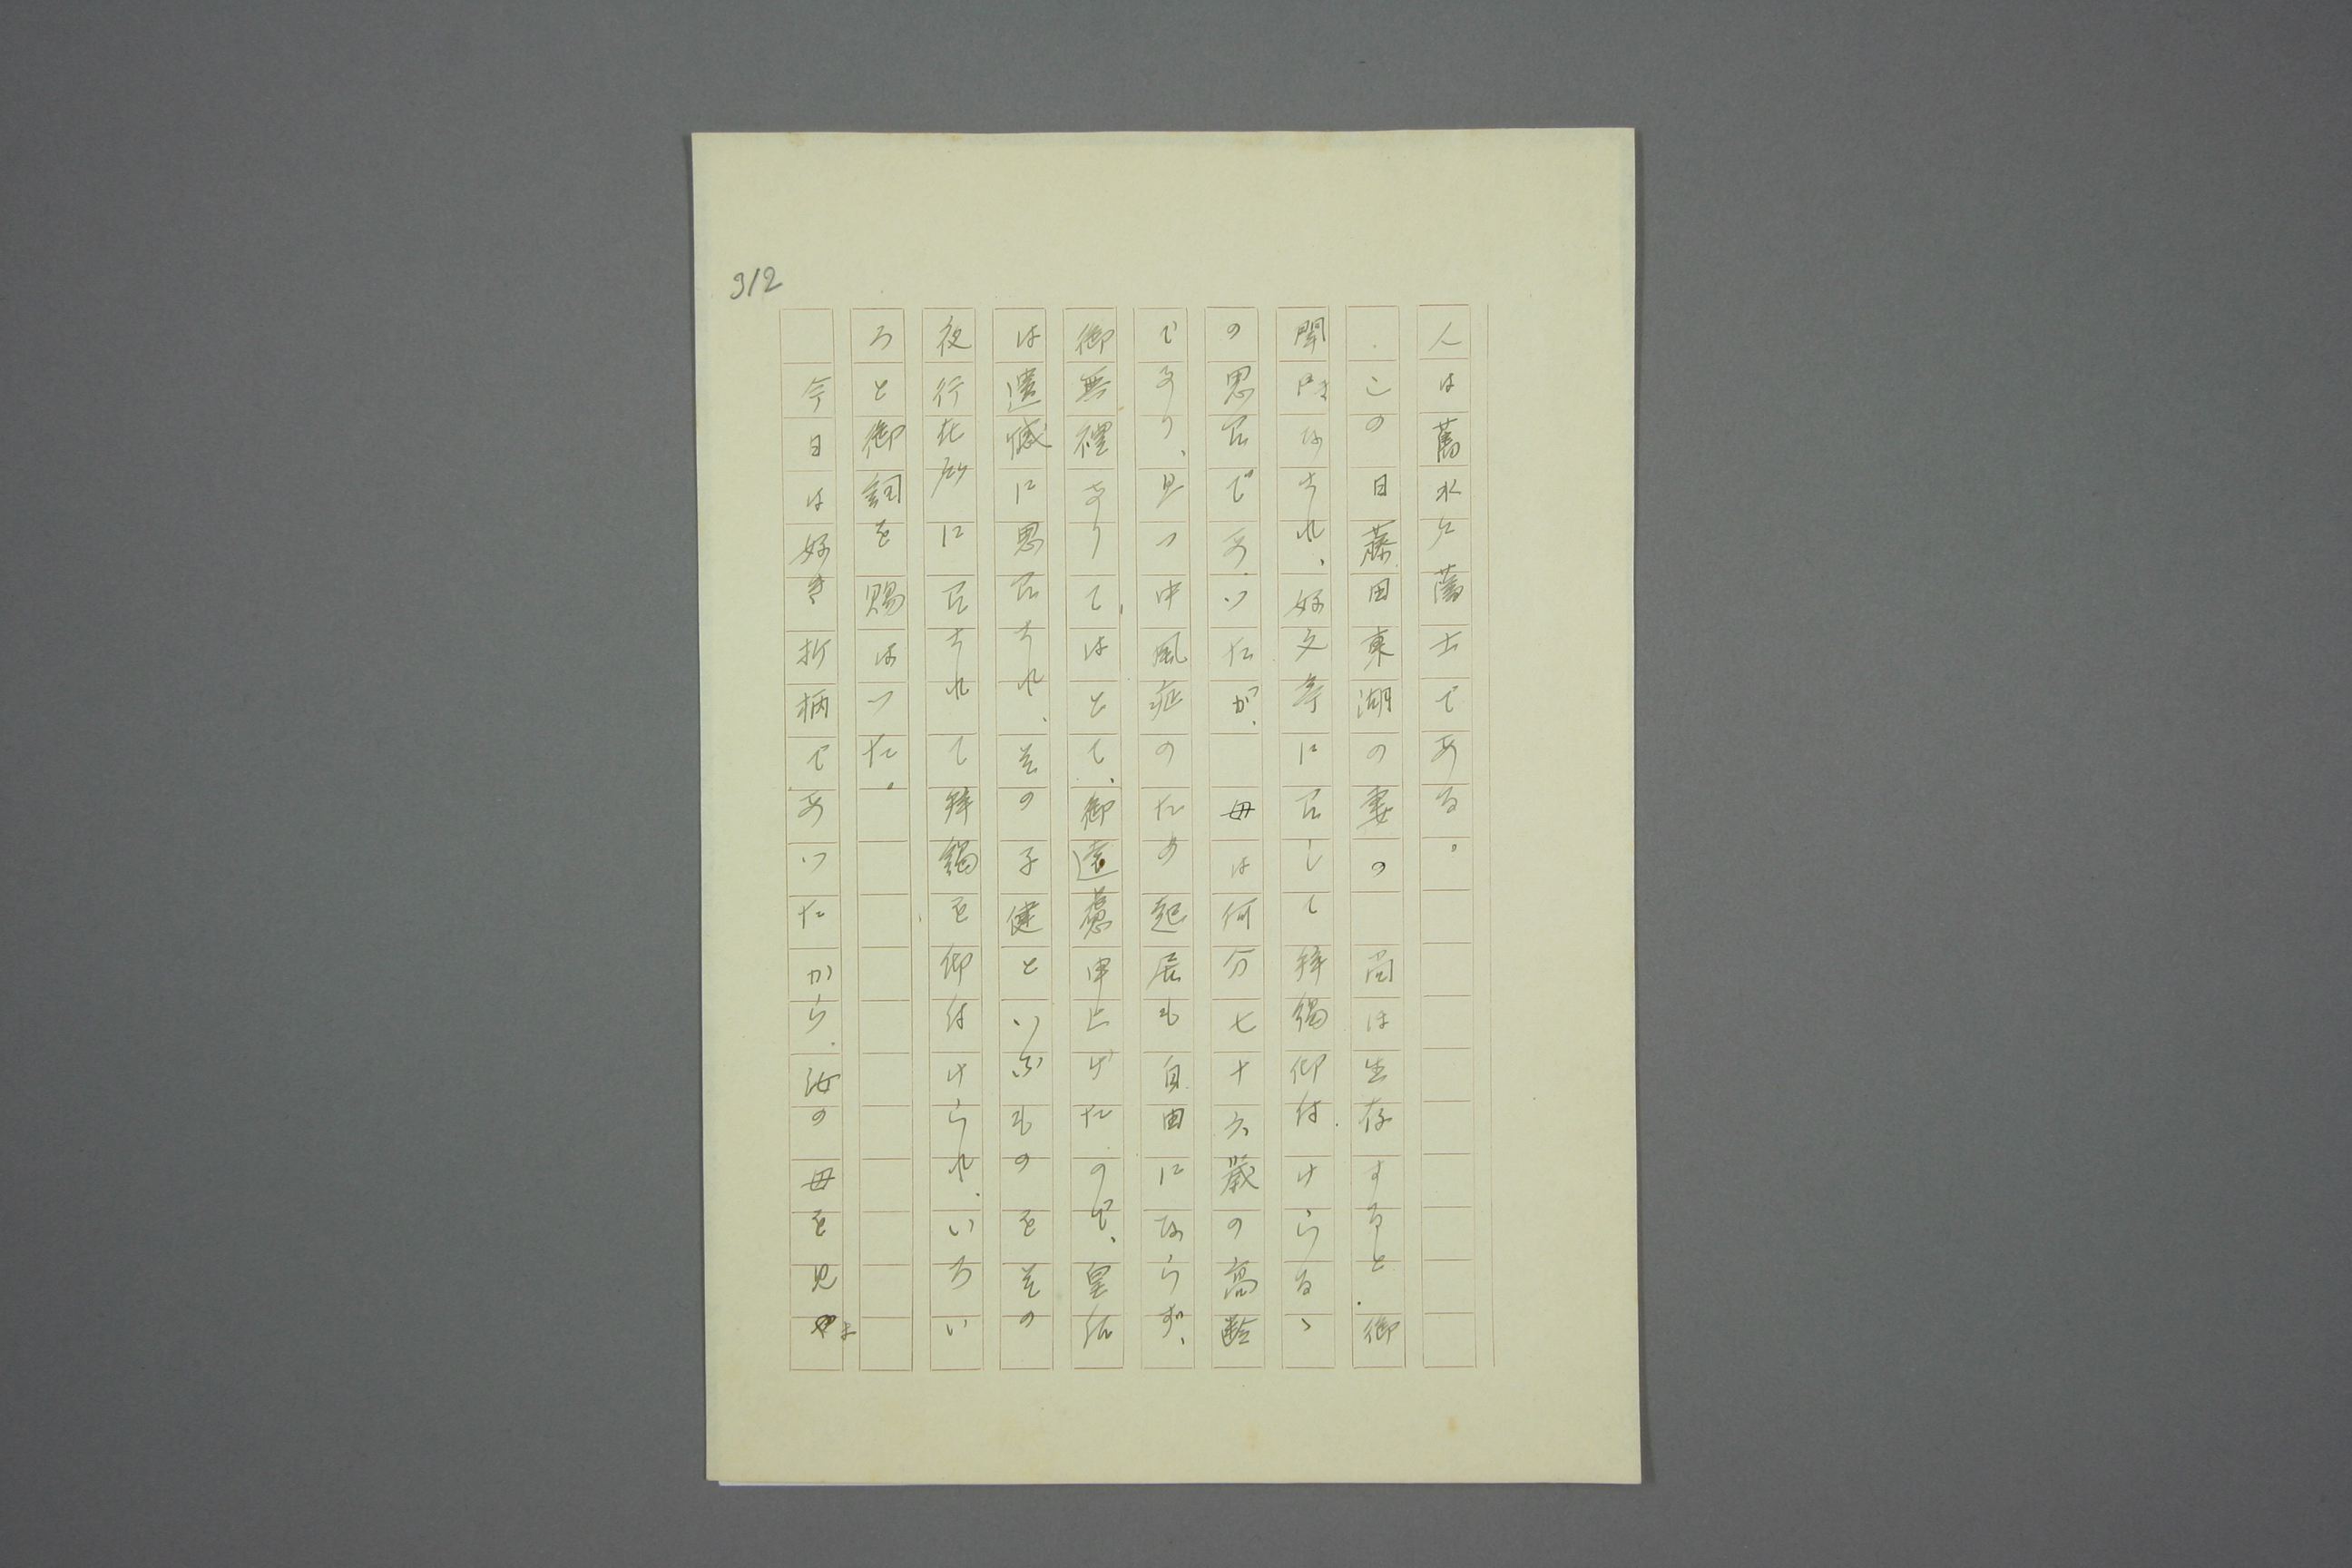 312
人は舊水戸藩士である。
この日藤田東湖の妻の尚は生存すると、御
聞けなされ、好文亭に召して拜謁仰付けらるゝ
の思召であつたが、母は何分七十六歳の高齢
であり、且つ中風症のため起居も自由にならず、
御無禮ありて、はとて、御遠慮申上げたので、皇后
は遺憾に思召され、その子健といふものをその
夜行在所に召されて拜謁を仰付けられ、いろい
ろと御詞を賜はつた。
今日は好き折柄であつたから、汝の母を見ま